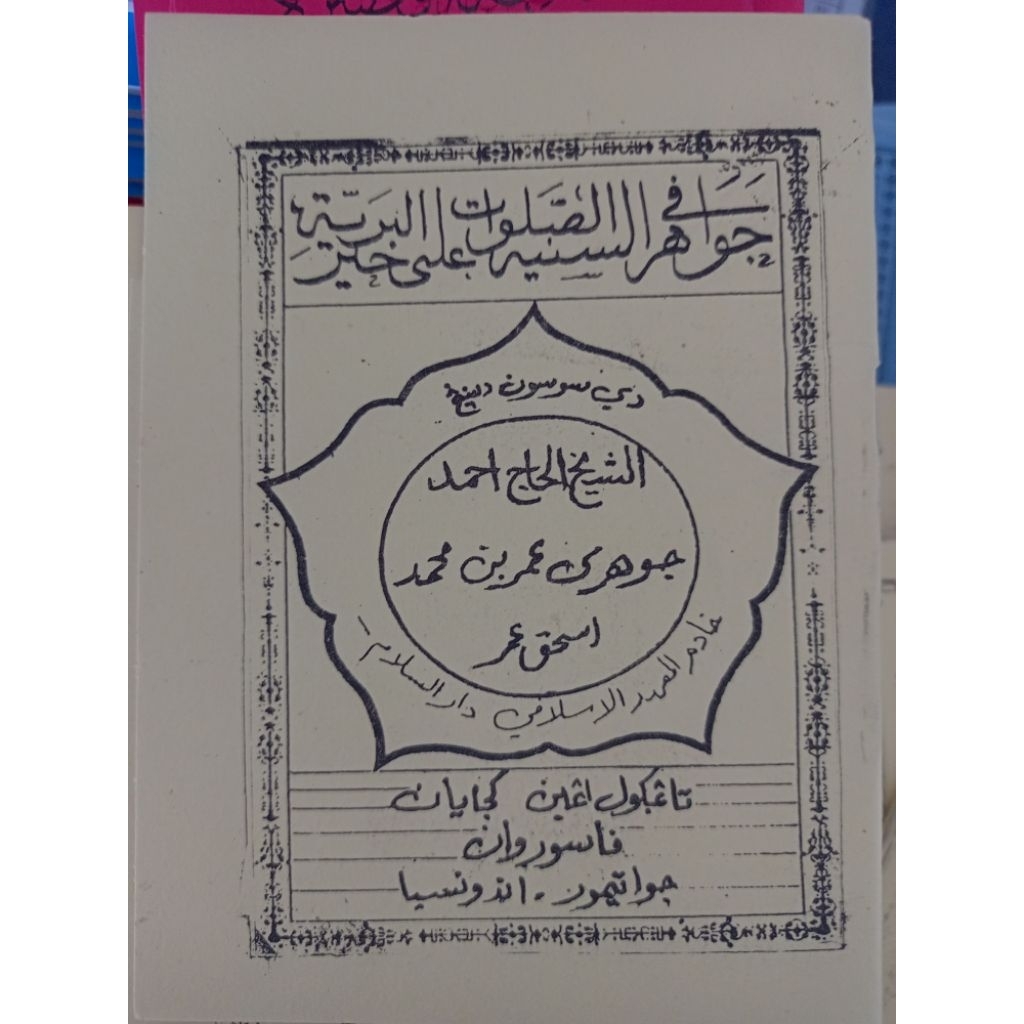 جَوَاهر السنية في الصَّلوات على خير البريّة
دي سوسون دينيڠ
الشيخ الحاج احمد
جوهري عمر بن محمد
اسحق عمر
خادم المعهد الاسلامي دار السلام
تاڠكول اڠين كجايان
فاسوروان
جوا تيمور - اندونسيا